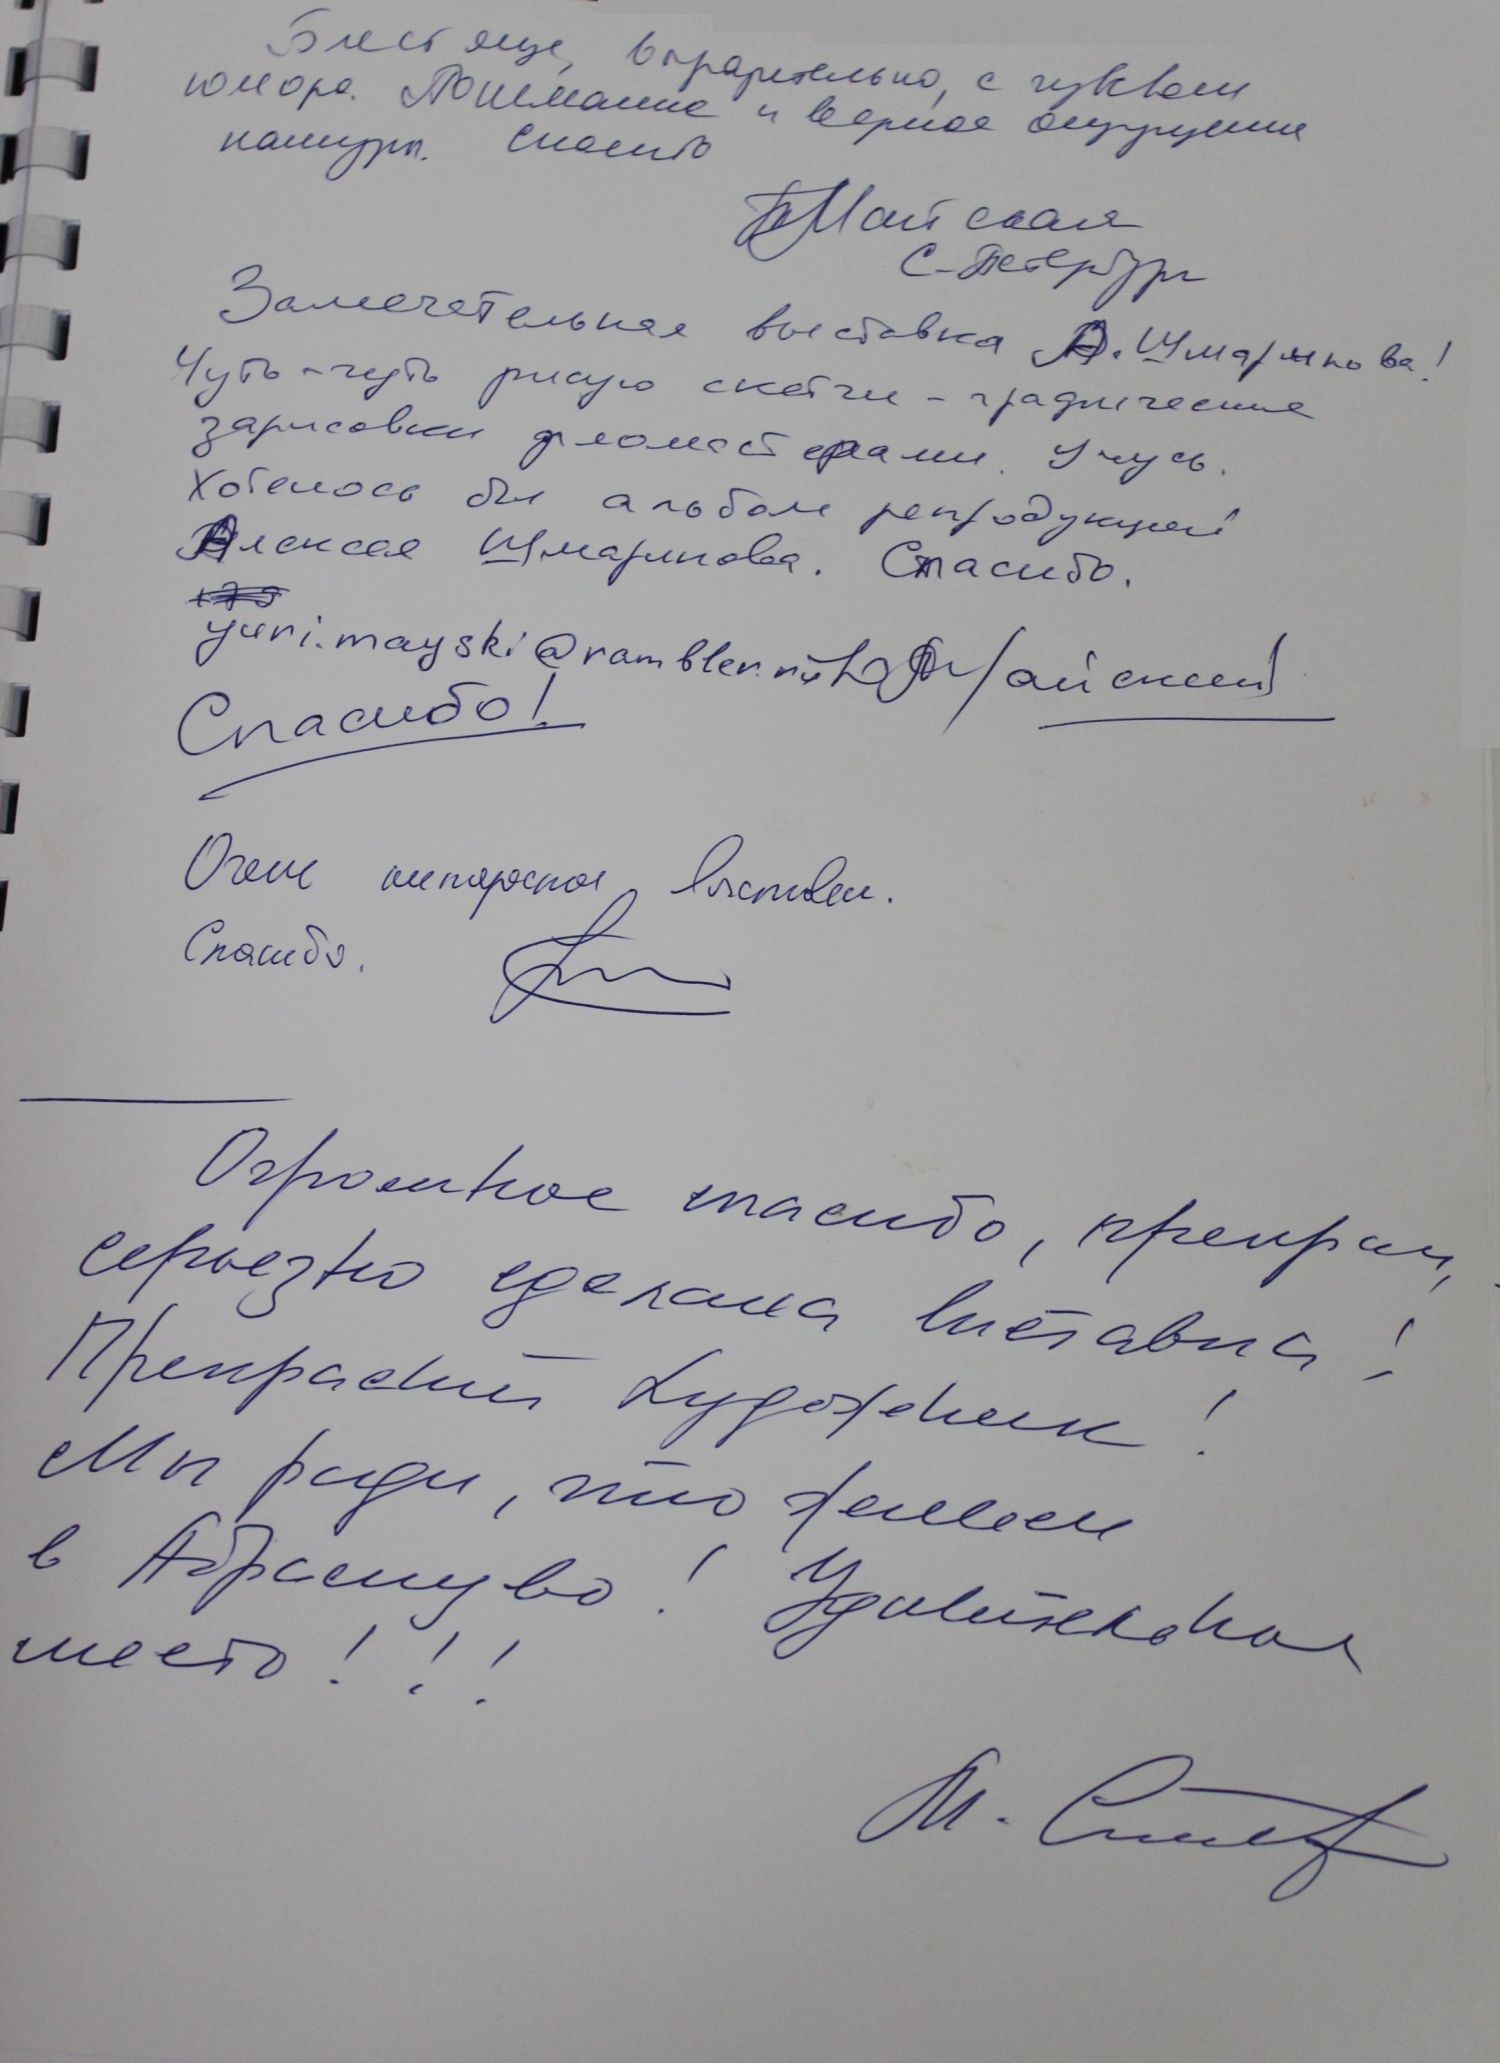 Блестяще, выразительно, с чувством
юмора. Понимание и верное ощущение
натуры. Спасибо
Майская
С-Петербург
Замечательная выставка А. Шмаринова!
Чуть-чуть рисую скетчи - графические
зарисовки фломастерами. Учусь.
Хотелось бы альбом репродукций
Алексея Шмаринова. Спасибо.
yuri.mayski@rambler.ru Ю Майский
Спасибо!
Очень интересная выставка.
Спасибо.
Огромное спасибо, прекрасн,
серьезно сделана выставка!
Прекрасный художник!
Мы рады, что живем
в Абрамцево! Удивительное
место!!!